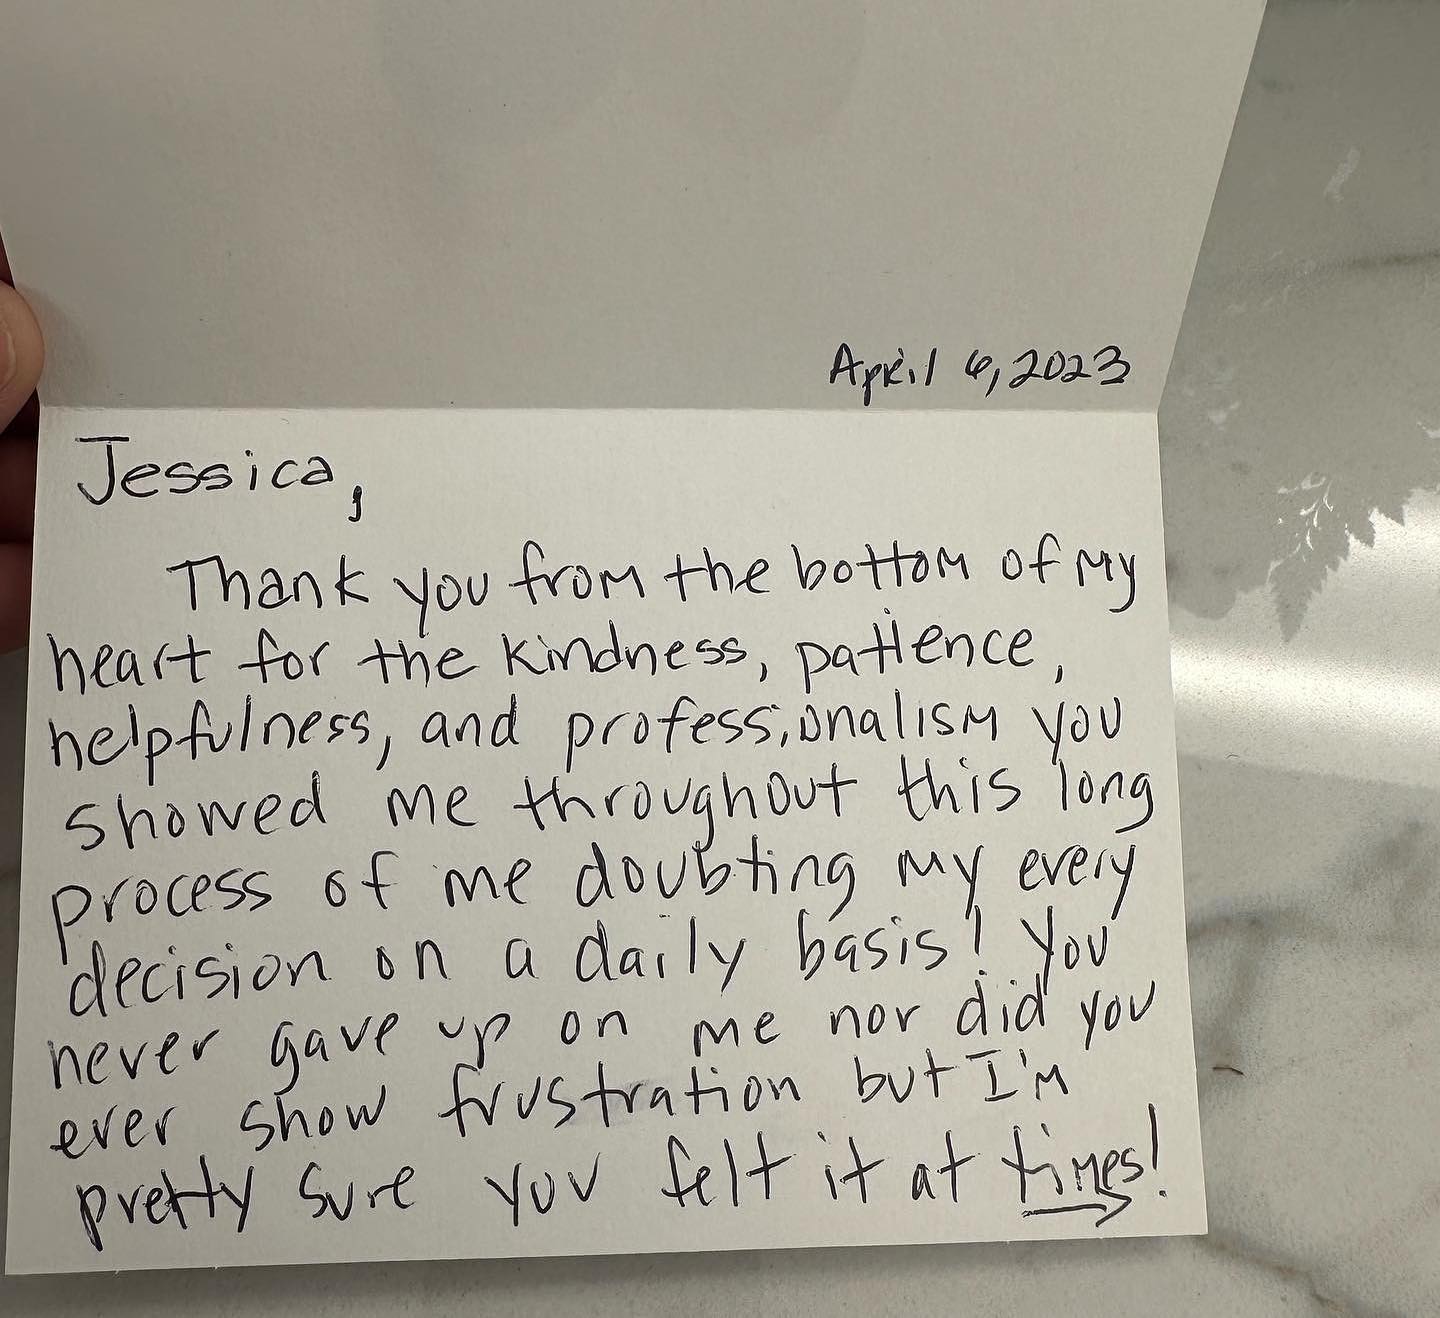 April 6, 2023
Jessica,
Thank you from the bottom of my
heart for the kindness, patience,
helpfulness, and professionalism you
showed me throughout this long
process of me doubting my every
decision on a daily basis! You
never gave up on me nor did you
ever show frustration but I'm
pretty sure you felt it at times!
→